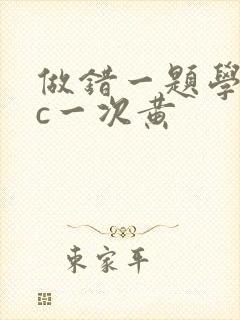 做錯一題學
c一次黄
東家平